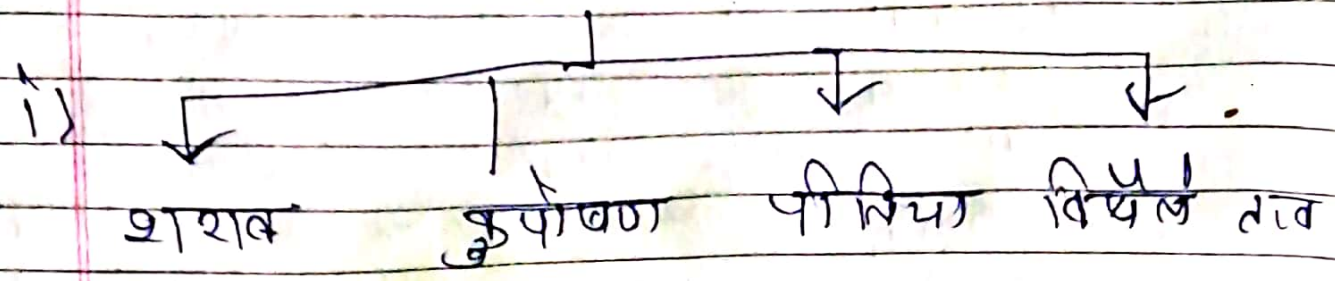 i)
शराब कुपोषण पीलिया विषैले तत्व